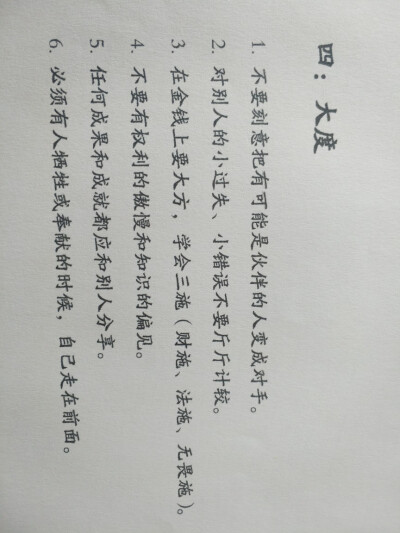 四：大度
1. 不要刻意把有可能是伙伴的人变成对手。
2. 对别人的小过失、小错误不要斤斤计较。
3. 在金钱上要大方，学会三施（财施、法施、无畏施）。
4. 不要有权利的傲慢和知识的偏见。
5. 任何成果和成就都应和别人分享。
6. 必须有人牺牲或奉献的时候，自己走在前面。